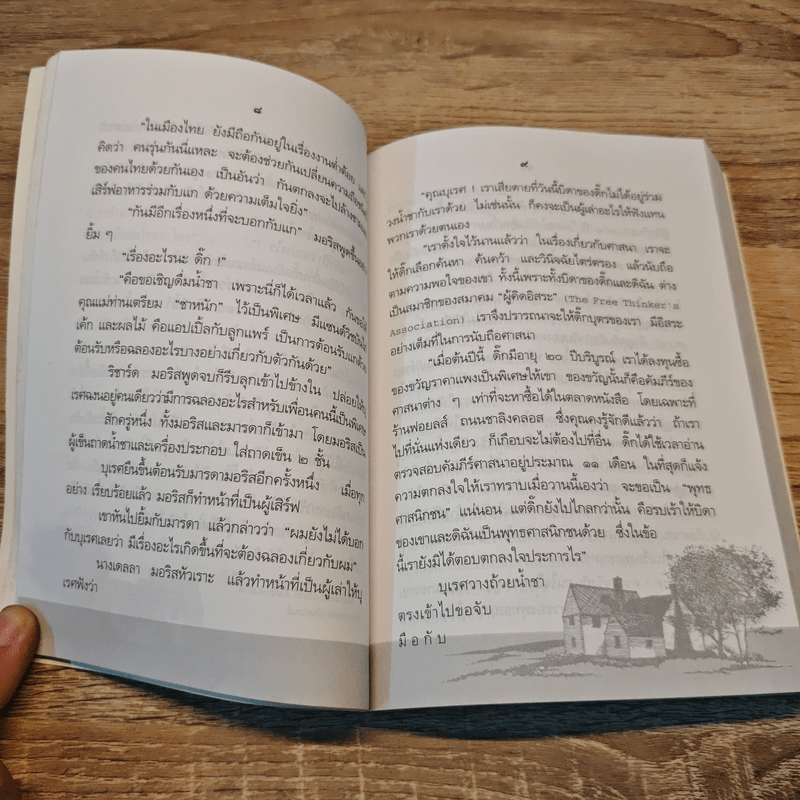 ๘
"ในเมืองไทย ยังมีถือกันอยู่ในเรื่องงานต่ำต้อย
คิดว่า คนรุ่นกันนี่แหละ จะต้องช่วยกันเปลี่ยนความ
ของคนไทยด้วยกันเอง เป็นอันว่า กันตกลงจะไปล้างชาม
เสิร์ฟอาหารร่วมกับแก ด้วยความเต็มใจยิ่ง"
"กันมีอีกเรื่องหนึ่งที่จะบอกกับแก" มอริสพูดขึ้น
ยิ้ม ๆ
"เรื่องอะไรนะ ดิ๊ก !"
"คือขอเชิญดื่มน้ำชา เพราะนี่ก็ได้เวลาแล้ว
คุณแม่ท่านเตรียม "ชาหนัก" ไว้เป็นพิเศษ มีแซนด์วิช
เค้ก และผลไม้ คือแอปเปิ้ลกับลูกแพร์ เป็นการต้อนรับแกด้วย
ต้อนรับหรือฉลองอะไรบางอย่างเกี่ยวกับตัวกันด้วย"
ริชาร์ด มอริสพูดจบก็รีบลุกเข้าไปข้างใน ปล่อยให้
เรศฉงนอยู่คนเดียวว่ามีการฉลองอะไรสำหรับเพื่อนคนนี้เป็นพิเศษ
สักครู่หนึ่ง ทั้งมอริสและมารดาก็เข้ามา โดยมอริสเป็น
ผู้เข็นถาดน้ำชาและเครื่องประกอบ ใส่ถาดเข็น ๒ ชั้น
บุเรศยืนขึ้นต้อนรับมารดามอริสอีกครั้งหนึ่ง เมื่อทุก
อย่าง เรียบร้อยแล้ว มอริสก็ทำหน้าที่เป็นผู้เสิร์ฟ
เขาหันไปยิ้มกับมารดา แล้วกล่าวว่า "ผมยังไม่ได้บอก
กับบุเรศเลยว่า มีเรื่องอะไรเกิดขึ้นที่จะต้องฉลองเกี่ยวกับผม"
นางเดลลา มอริสหัวเราะ แล้วทำหน้าที่เป็นผู้เล่าให้บุ
เรศฟังว่า
๙
"คุณบุเรศ ! เราเสียดายที่วันนี้บิดาของดิ๊กไม่ได้อยู่ร่วม
วงน้ำชากับเราด้วย ไม่เช่นนั้น ก็คงจะเป็นผู้เล่าอะไรให้ฟังแทน
พวกเราด้วยตนเอง
"เราตั้งใจไว้นานแล้วว่า ในเรื่องเกี่ยวกับศาสนา เราจะ
ให้ดิ๊กเลือกค้นหา ค้นคว้า และวินิจฉัยไตร่ตรอง แล้วนับถือ
ตามความพอใจของเขา ทั้งนี้เพราะทั้งบิดาของดิ๊กและดิฉัน ต่าง
เป็นสมาชิกของสมาคม "ผู้คิดอิสระ" (The Free Thinker's
Association) เราจึงปรารถนาจะให้ดิ๊กบุตรของเรา มีอิสระ
อย่างเต็มที่ในการนับถือศาสนา
"เมื่อต้นปีนี้ ดิ๊กมีอายุ ๒๐ ปีบริบูรณ์ เราได้ลงทุนซื้อ
ของขวัญราคาแพงเป็นพิเศษให้เขา ของขวัญนั้นก็คือคัมภีร์ของ
ศาสนาต่าง ๆ เท่าที่จะหาซื้อได้ในตลาดหนังสือ โดยเฉพาะที่
ร้านฟอยลส์ ถนนชาลิงคลอส ซึ่งคุณคงรู้จักดีแล้วว่า ถ้าเรา
ไปที่นั่นแห่งเดียว ก็เกือบจะไม่ต้องไปที่อื่น ดิ๊กได้ใช้เวลาอ่าน
ตรวจสอบคัมภีร์ศาสนาอยู่ประมาณ ๑๑ เดือน ในที่สุดก็แจ้ง
ความตกลงใจให้เราทราบเมื่อวานนี้เองว่า จะขอเป็น "พุทธ
ศาสนิกชน" แน่นอน แต่ดิ๊กยังไปไกลกว่านั้น คือรบเร้าให้บิดา
ของเขาและดิฉันเป็นพุทธศาสนิกชนด้วย ซึ่งในข้อ
นี้เรายังมิได้ตอบตกลงใจประการไร"
บุเรศวางถ้วยน้ำชา
ตรงเข้าไปขอจับ
มือกับ